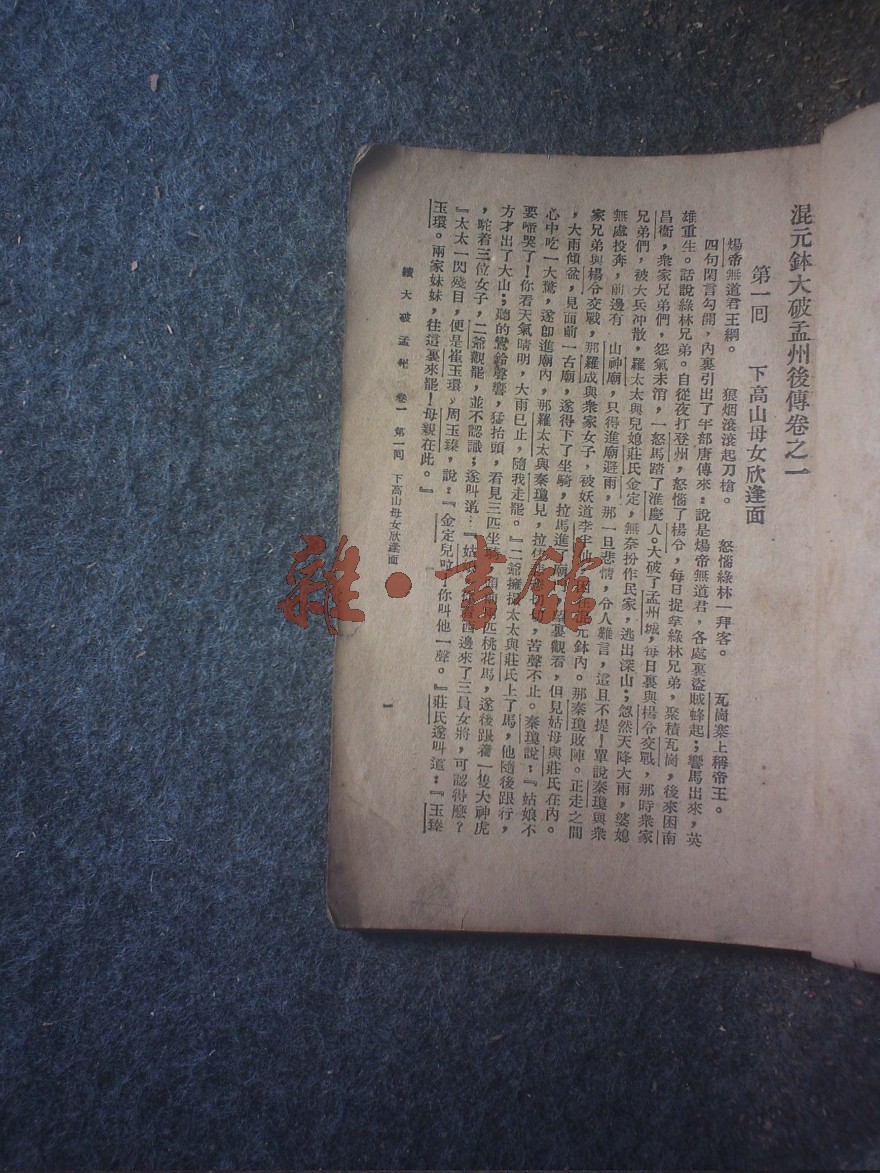 混元鉢大破孟州後傳卷之一
第一回　下高山母女欣逢面
煬帝無道君王綱。　狼烟滾滾起刀槍。　怒惱綠林一拜客。　瓦崗寨上稱帝王。
四句閑言勾開，內裏引出了半部唐傳來：說是煬帝無道君，各處裏盜賊蜂起；響馬出來，英
雄重生。話說綠林兄弟。自從夜打登州，怒惱了楊令，每日捉拿綠林兄弟，聚積瓦崗，後來困南
昌衛，衆家兄弟們，怨氣未消，一怒馬踏了淮慶人。大破了孟州城，每日裏與楊令交戰，那時衆家
兄弟們，被大兵冲散，羅太太與兒媳莊氏金定，無奈扮作民家，逃出深山；忽然天降大雨，婆媳
無處投奔，前邊有　山神廟，只得進廟避雨，那一旦悲情，令人難言，這且不提！單說秦瓊與衆
家兄弟與楊令交戰，那羅成與衆家女子，被妖道李半仙，元鉢內。那秦瓊敗陣。正走之間
，大雨傾盆，見面前一古廟，遂得下了坐騎，拉馬進了廟，裏觀看，但見姑母與莊氏在內。
心中吃一大驚，遂卽進廟內，那羅太太與秦瓊見，拉，苦聲不止。秦瓊說：『姑娘不
要啼哭了！你看天氣晴明，大雨已止，隨我走罷。』二爺擁撮太太與莊氏上了馬，他隨後跟行，
方才出了大山；聽的鸞鈴聲響，猛抬頭，看見三匹坐騎，匹桃花馬，遂後跟着一隻大神虎
，駝着三位女子，二爺觀罷，並不認識；遂叫道：『姑，西邊來了三員女將，可認得麽？
『太太一閃殘目，便是崔玉環，周玉臻，說：『金定兒，你叫他一聲。』莊氏遂叫道：『玉臻
玉環。兩家妹妹，往這裏來罷！母親在此。』
續大破孟州　卷一　第一回　下高山母女欣逢面
一
雜·書館